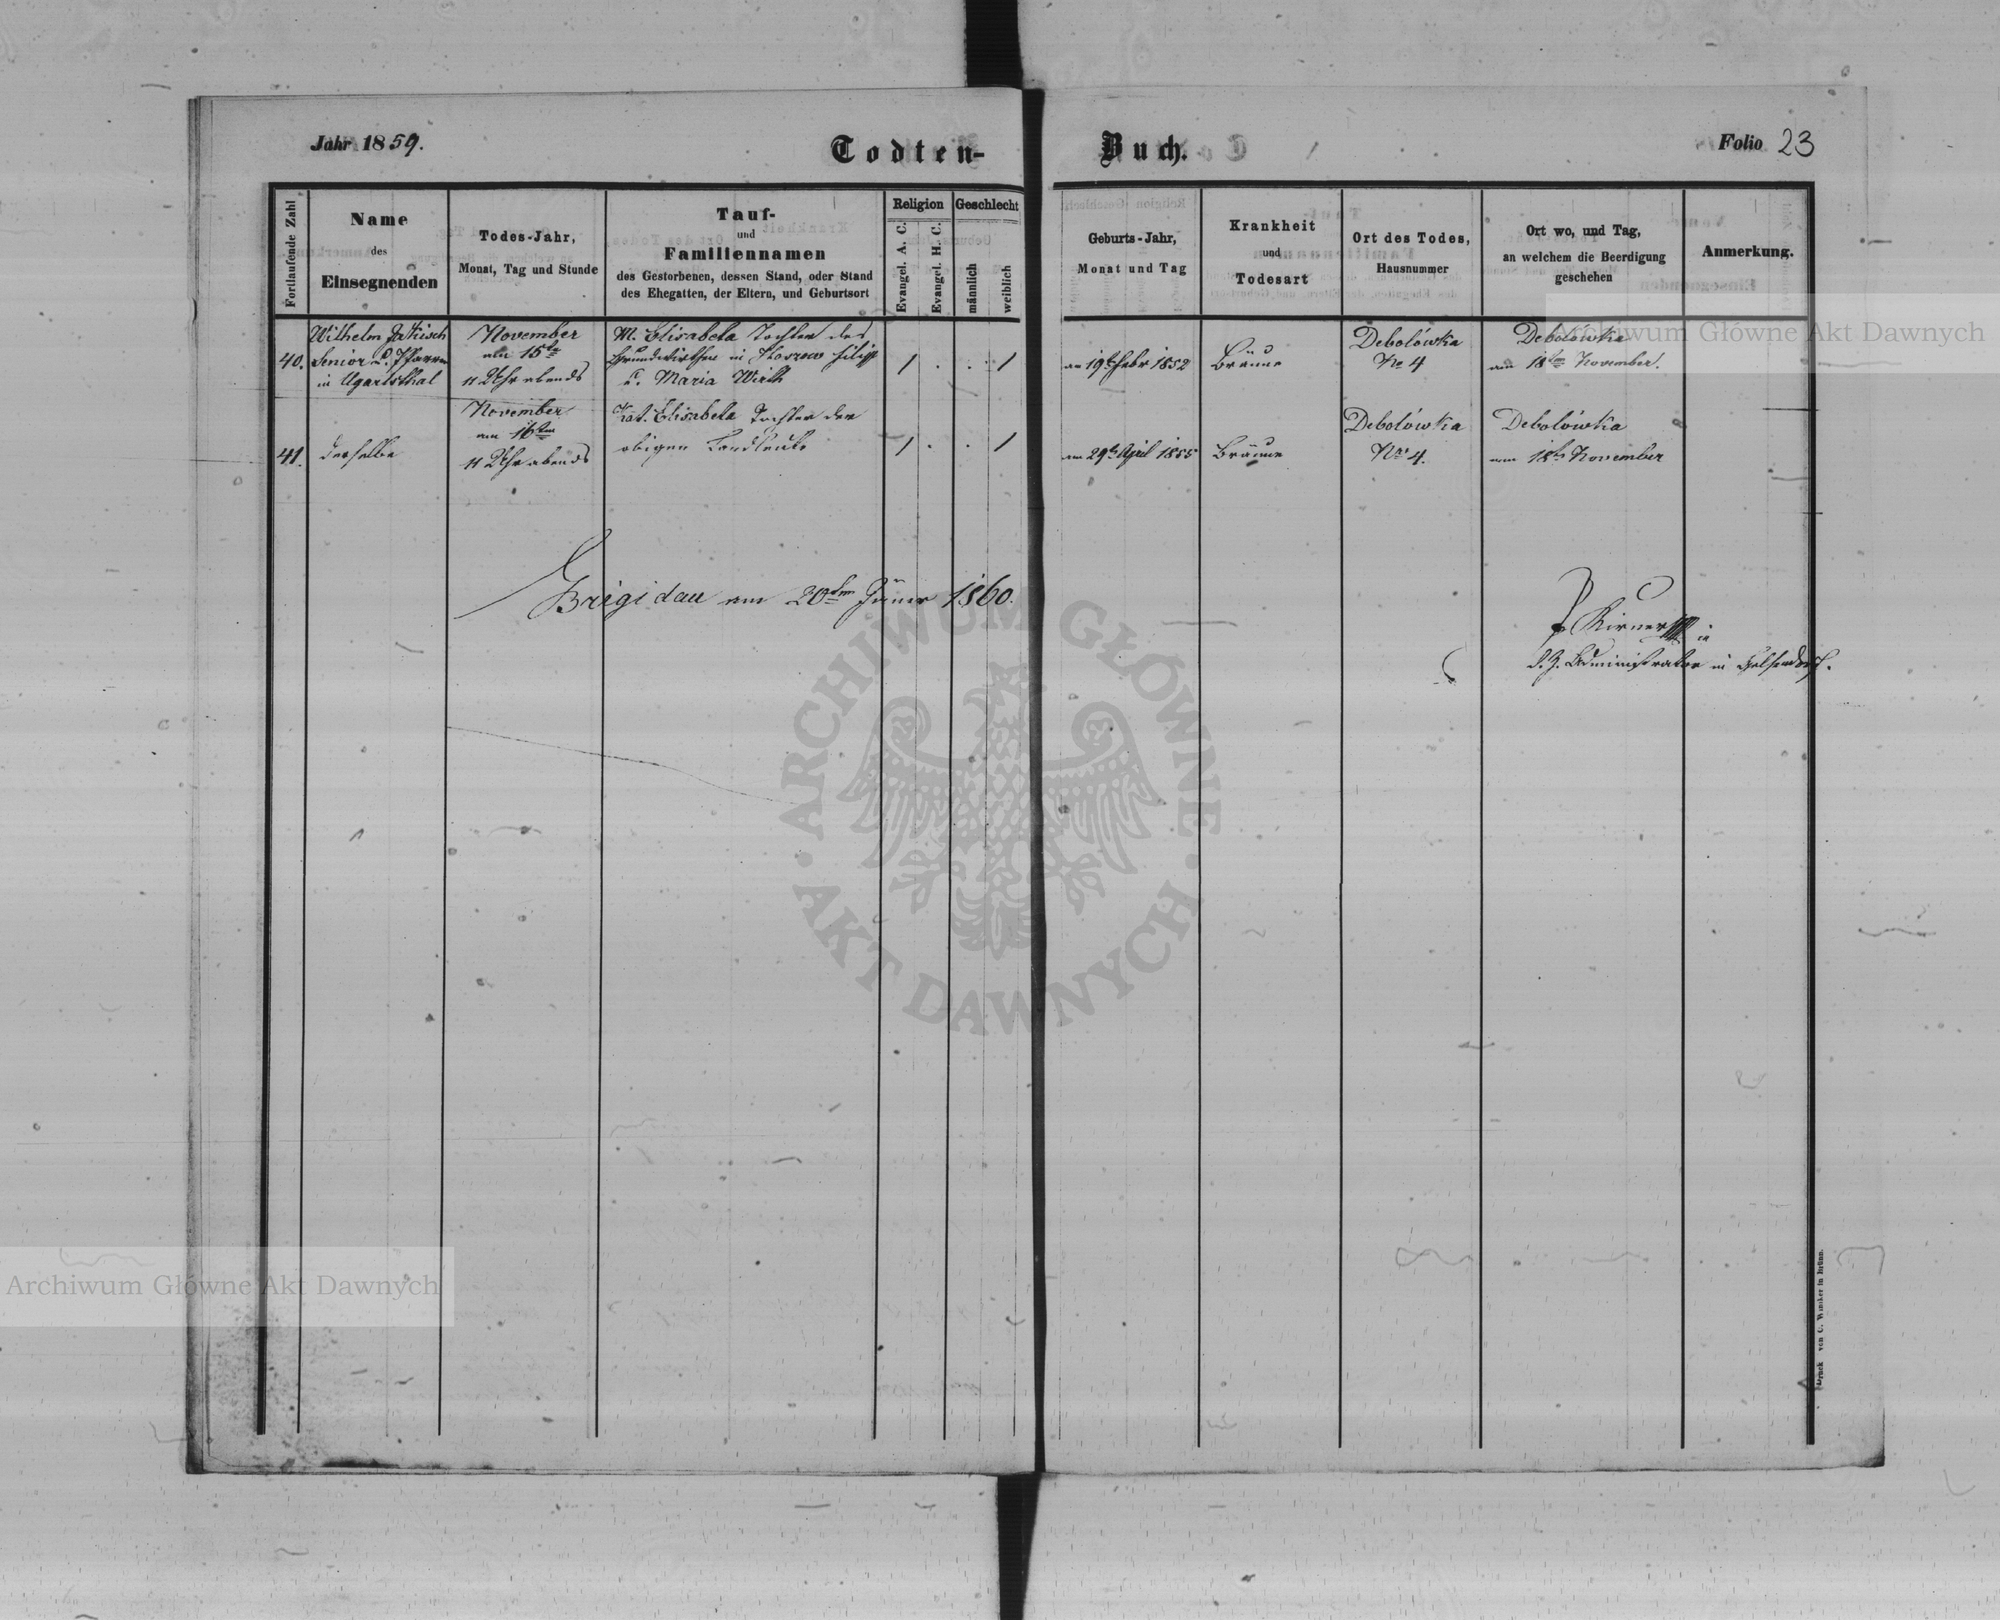 Jahr 1859.
Todten-
Buch.
Folio 23
Fortlaufende Zahl
Name
des
Einsegnenden
Todes-Jahr,
Monat, Tag und Stunde
Tauf-
und
Familiennamen
des Gestorbenen, dessen Stand, oder Stand
des Ehegatten, der Eltern, und Geburtsort
Religion
Evangel. A. C.
Evangel. H. C.
Geschlecht
männlich
weiblich
Geburts-Jahr,
Monat und Tag
Krankheit
und
Todesart
Ort des Todes,
Hausnummer
Ort wo, und Tag,
an welchem die Beerdigung
geschehen
Anmerkung.
40.
Wilhelm
Senior u. Pfarrer
in Ugartsthal
November
am 15te
11 Uhr abends
M. Elisabeta Tochter des
Grundwirthen in
u. Maria Wirth
1 . . 1
am 19t Febr 1852
Bräune
Debolówka
No 4
Debolówka
am 18ten November.
41.
derselbe
November
am 16ten
11 Uhr abends
Kat. Elisabeta Tochter der
obigen Landleute
1 . . 1
am 29t April 1855
Bräune
Debolówka
Nr 4.
Debolówka
am 18t November
Brigidau am 20ten Jäner 1860.
Kirner
d. Z. Administrator in Gelsendorf.
Druck von C. Winiker in Brünn.
Archiwum Główne Akt Dawnych
ARCHIWUM GŁÓWNE · AKT DAWNYCH ·
Archiwum Główne Akt Dawnych